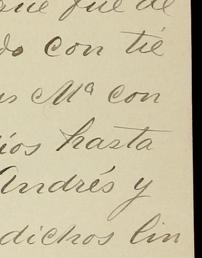 que fue de
do con tie
us Mª con
íos hasta
Andrés y
dichos lin